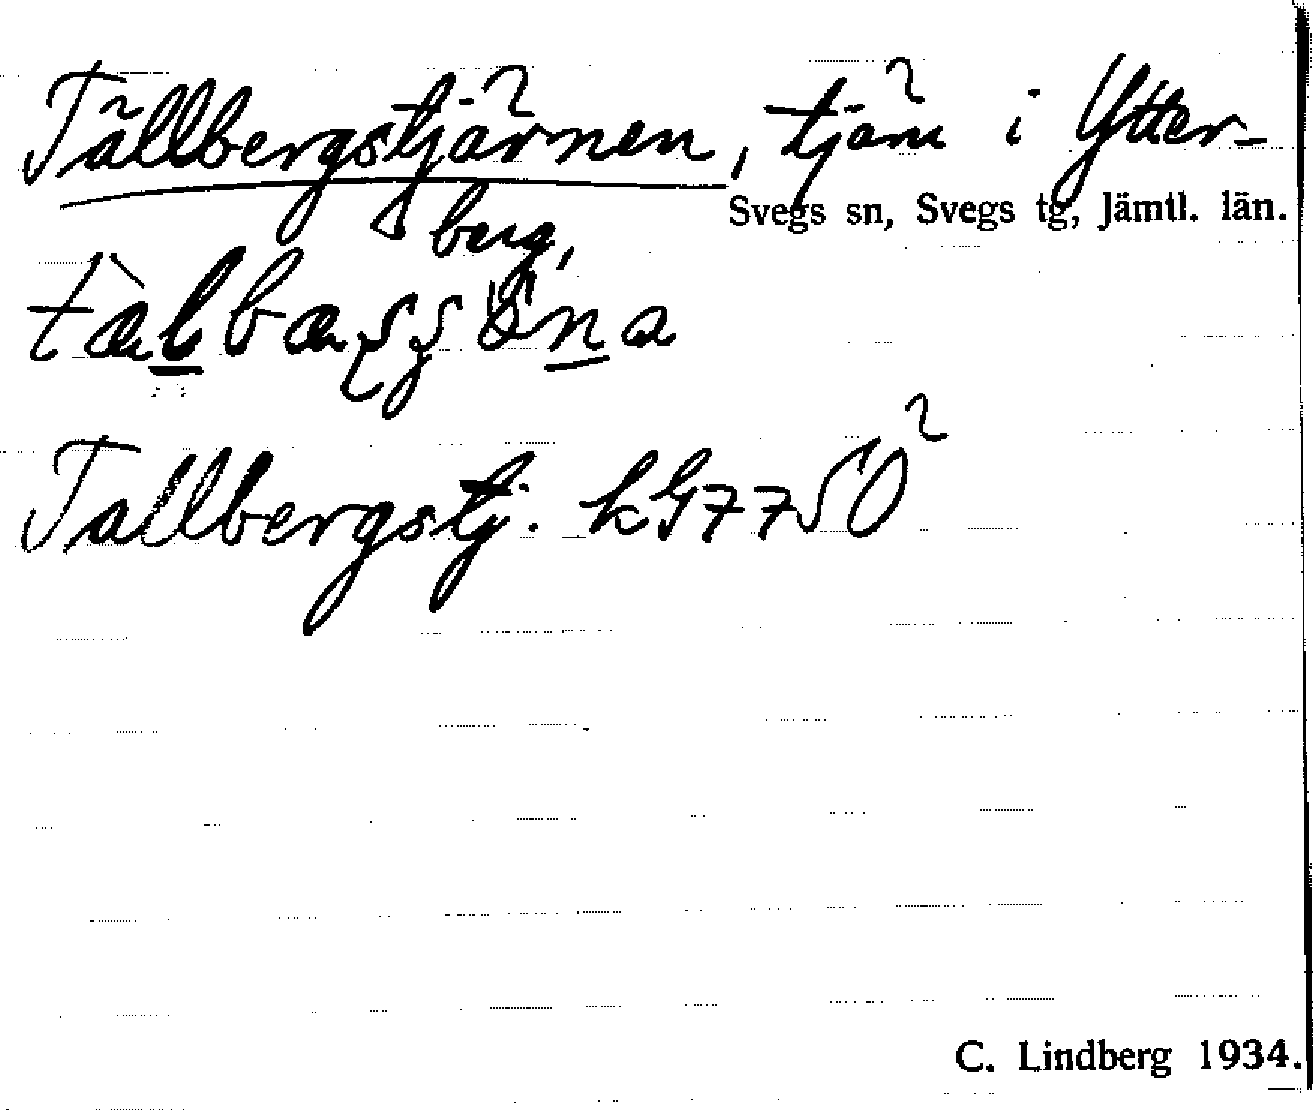 Tällbergstjärnen, tjärn i Ytter-
berg, Svegs sn, Svegs tg, Jämtl. län.
Tallbergstj. kG7750
C. Lindberg 1934.